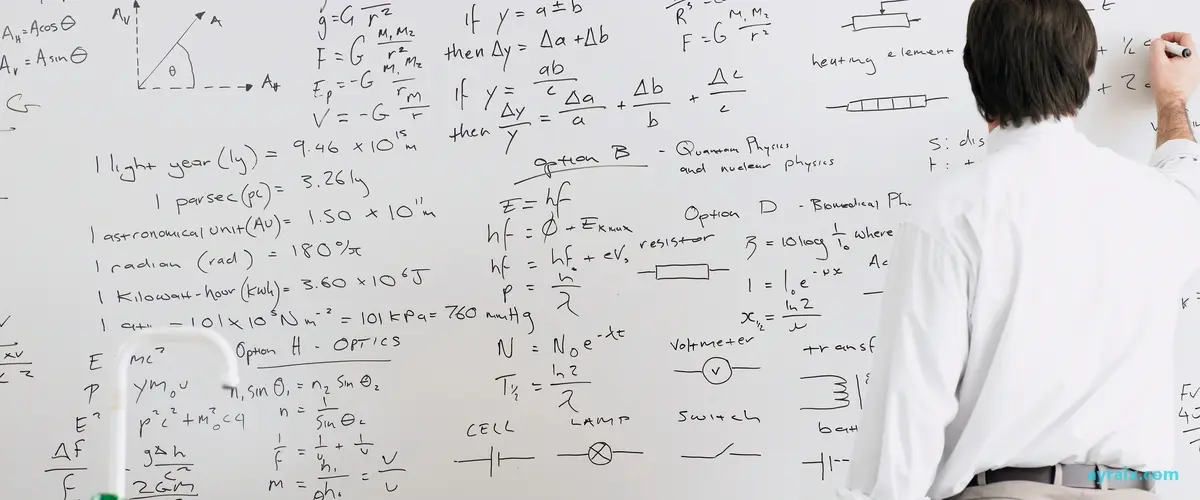 A_H = A cos θ
A_V = A sin θ
A_V
A
θ
A_H
g = G M/r²
F = G M₁M₂/r²
E_p = -G M₁M₂/r
V = -G M/r
If y = a ± b
then Δy = Δa + Δb
If y = ab/c
then Δy/y = Δa/a + Δb/b + Δc/c
F = G M₁M₂/r²
heating element
1 light year (ly) = 9.46 × 10¹⁵ m
1 parsec (pc) = 3.26 ly
1 astronomical unit (AU) = 1.50 × 10¹¹ m
1 radian (rad) = 180°/π
1 Kilowatt-hour (kWh) = 3.60 × 10⁶ J
= 101 × 10³ N m⁻² = 101 kPa = 760 mmHg
option B - Quantum Physics
and nuclear physics
E = hf
hf = Φ + E_K max
p = h/λ
N = N₀e^-λt
T½ = ln 2/λ
Option D - Biomedical Ph
β = 10 log I/I₀ where
I = I₀e^-μx
x½ = ln 2/μ
resistor
Voltmeter
V
transf
CELL
LAMP
Switch
bat
Option H - OPTICS
n₁ sin θ₁ = n₂ sin θ₂
n = 1/sin θc
E mc²
E² p²c² + m₀²c4
Δf/f gΔh/c²
2GM
s: dis
t:
ayraix.com